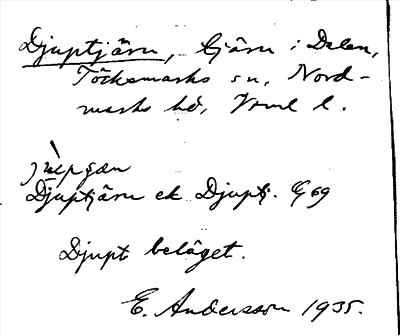 Djuptjärn, tjärn i Dalen,
Töcksmarks sn, Nord-
marks hd, Vrml l.
Djuptjärn ek Djuptj. G 69
Djupt beläget.
E. Andersson 1935.